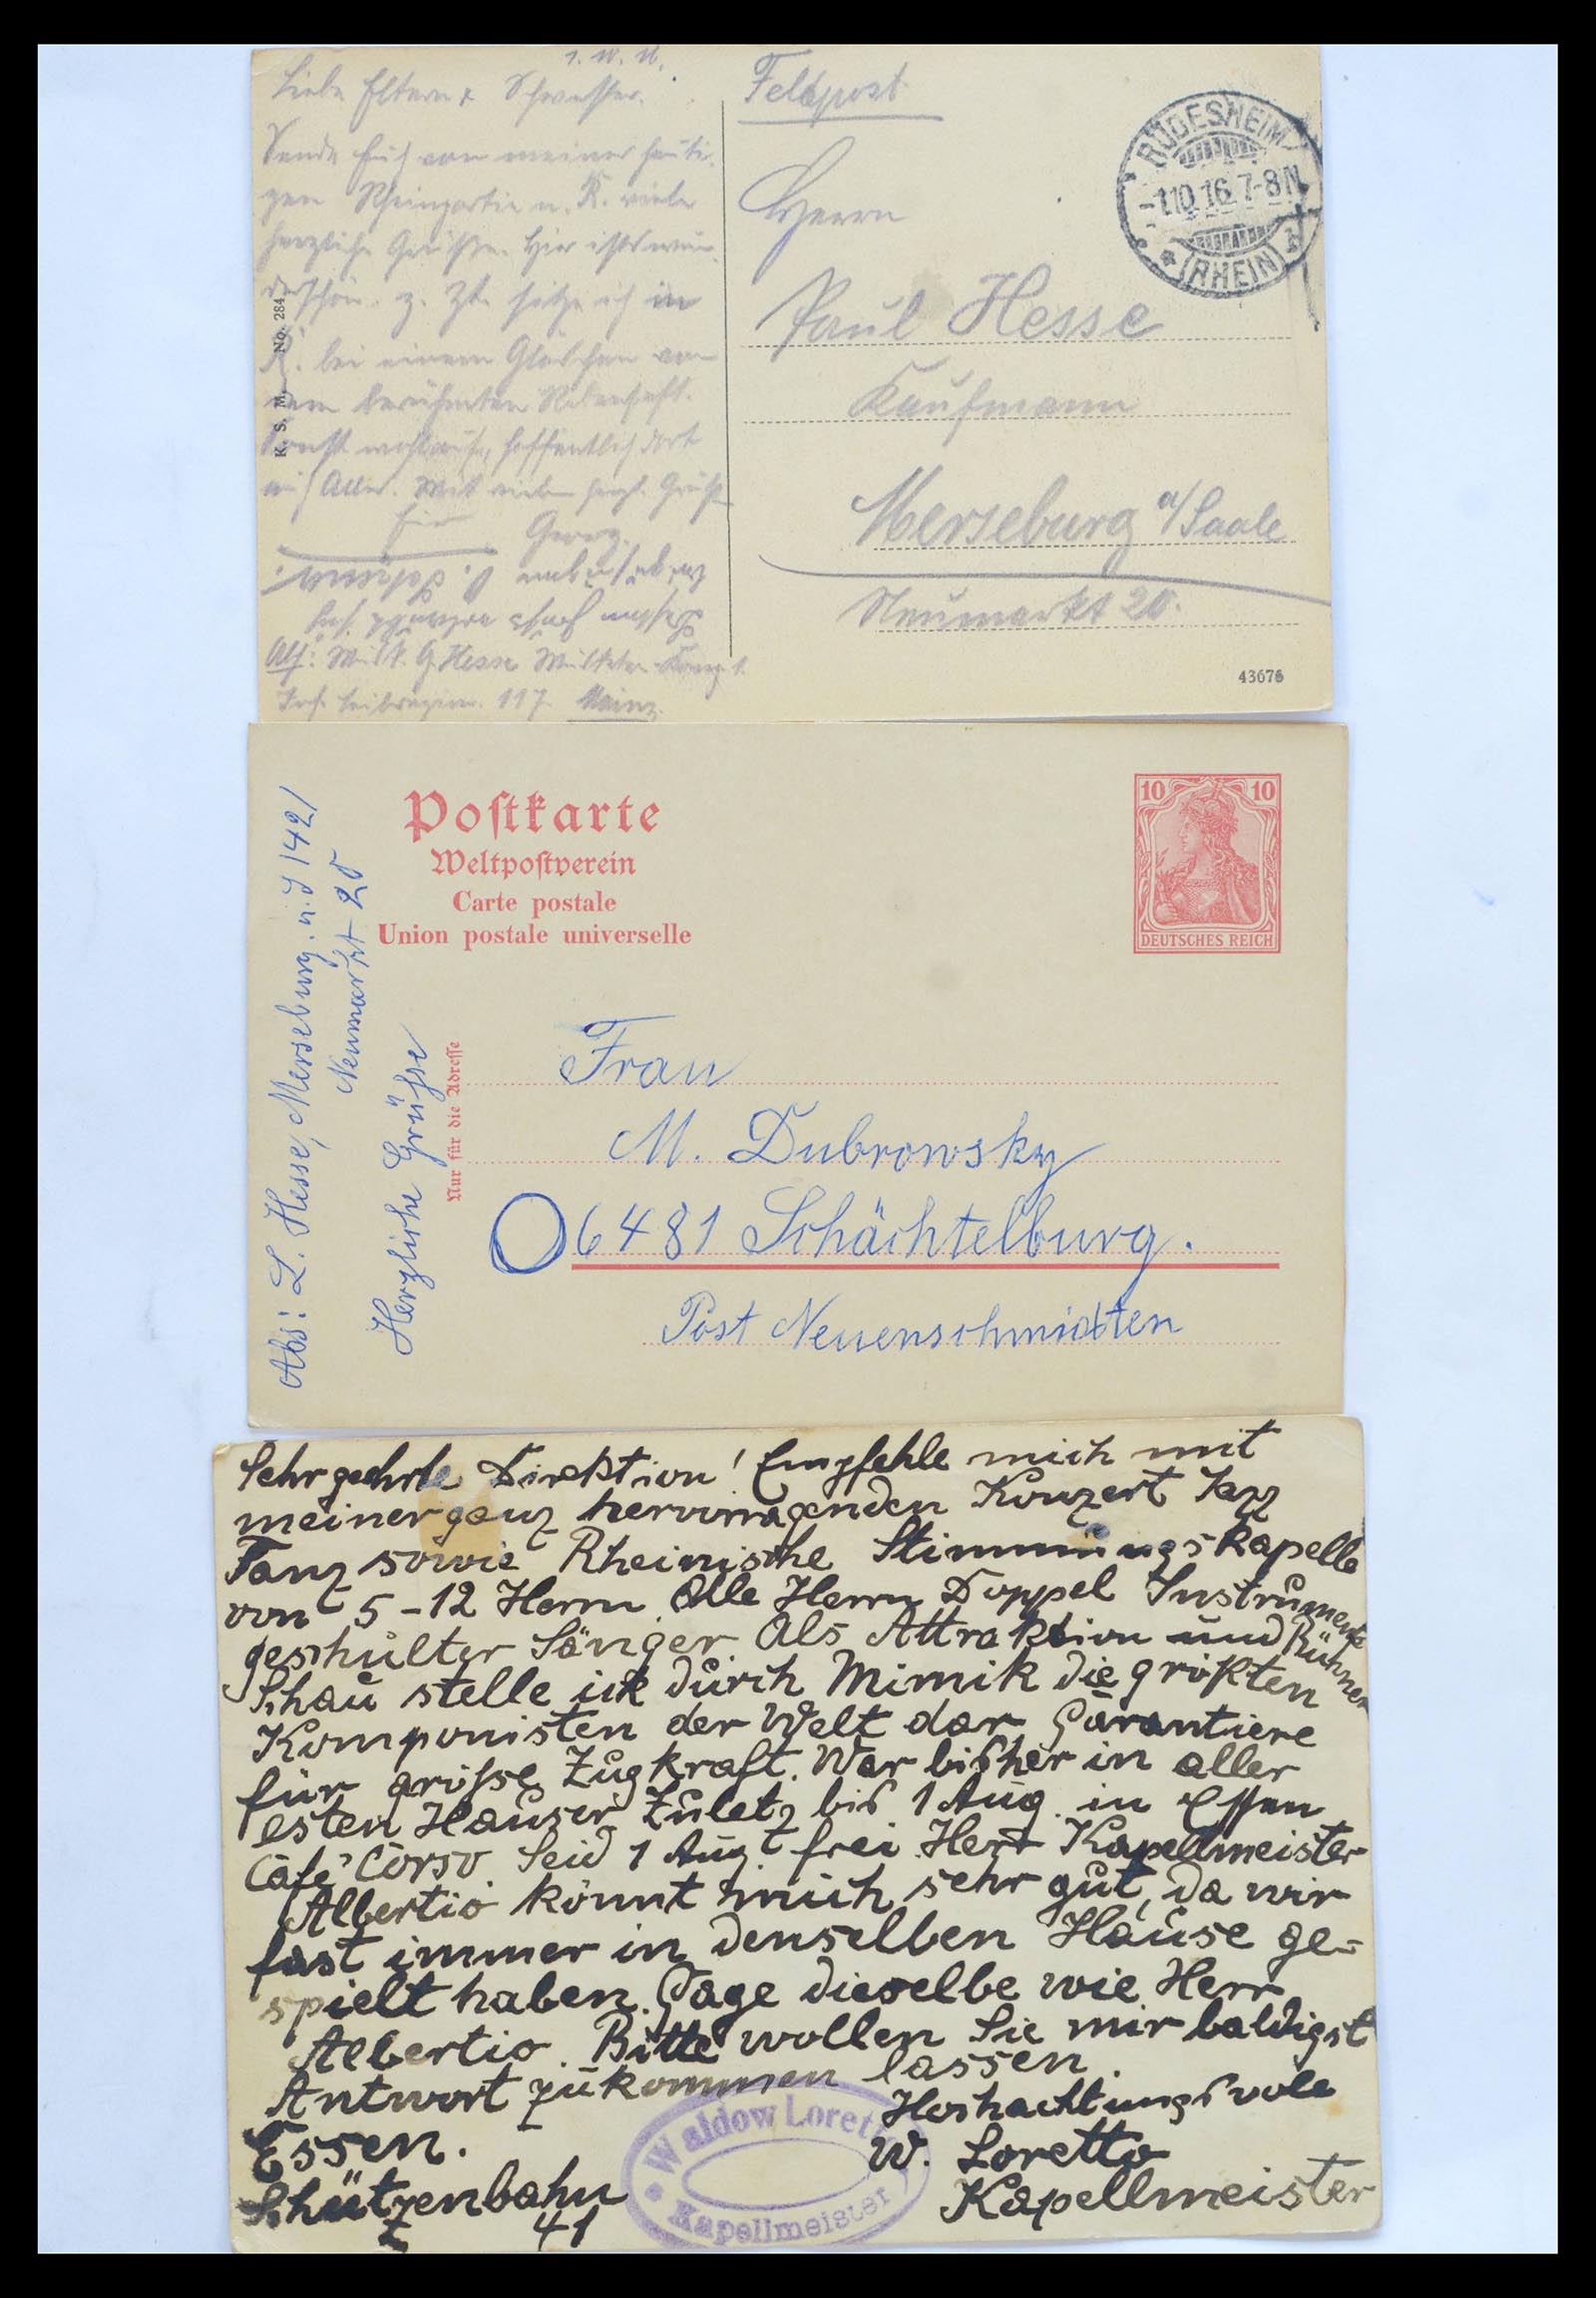 1. 10. 16.
Liebe Eltern & Schwester.
Sende Euch von meiner heuti-
gen Rheinpartie n. R. viele
herzliche Grüße. Hier ists wun-
derschön. z. Zt. sitze ich in
R. bei einem Gläschen von
dem berühmten Rebensaft.
Sonst wohlauf, hoffentlich dort
auch Alles. Mit vielen herzl. Grüßen
Euer Georg.
Abs: G. Hesse
Inf. Leibregim. 117. Mainz.
K. S. M. No. 284
Feldpost
RÜDESHEIM
-1.10.16.7-8N.
(RHEIN)
Herrn
Paul Hesse
Kaufmann
Merseburg a/Saale
Neumarkt 20.
43676
Postkarte
Weltpostverein
Carte postale
Union postale universelle
10 10
DEUTSCHES REICH
Abs: L. Hesse, Merseburg.
Neumarkt 20
Herzliche Grüsse
Nur für die Adresse
Frau
M. Dubrowsky
O6481 Schächtelburg.
Post Neuenschmidten
Sehr geehrte Direktion! Empfehle mich mit
meiner ganz hervorragenden Konzert Jazz
Tanz sowie Rheinische Stimmungskapelle
von 5-12 Herrn. Alle Herrn Doppel Instrumente
geschulter Sänger. Als Attraktion und Bühnen
Schau stelle ich durch Mimik die größten
Komponisten der Welt dar. Garantiere
für grösse Zugkraft. War bisher in aller
esten Häuser. Zuletz bis 1 Aug. in Essen
Café Corso. Seid 1 Aug. frei. Herr Kapellmeister
Albertio könnt mich sehr gut, da wir
fast immer in denselben Hause ge-
spielt haben. Gage dieselbe wie Herr
Albertio. Bitte wollen Sie mir baldigst
Antwort zukommen lassen.
Hochachtungsvoll
Essen.
W. Loretto
Schützenbahn
Kapellmeister
41
Waldow Lorett
Kapellmeister